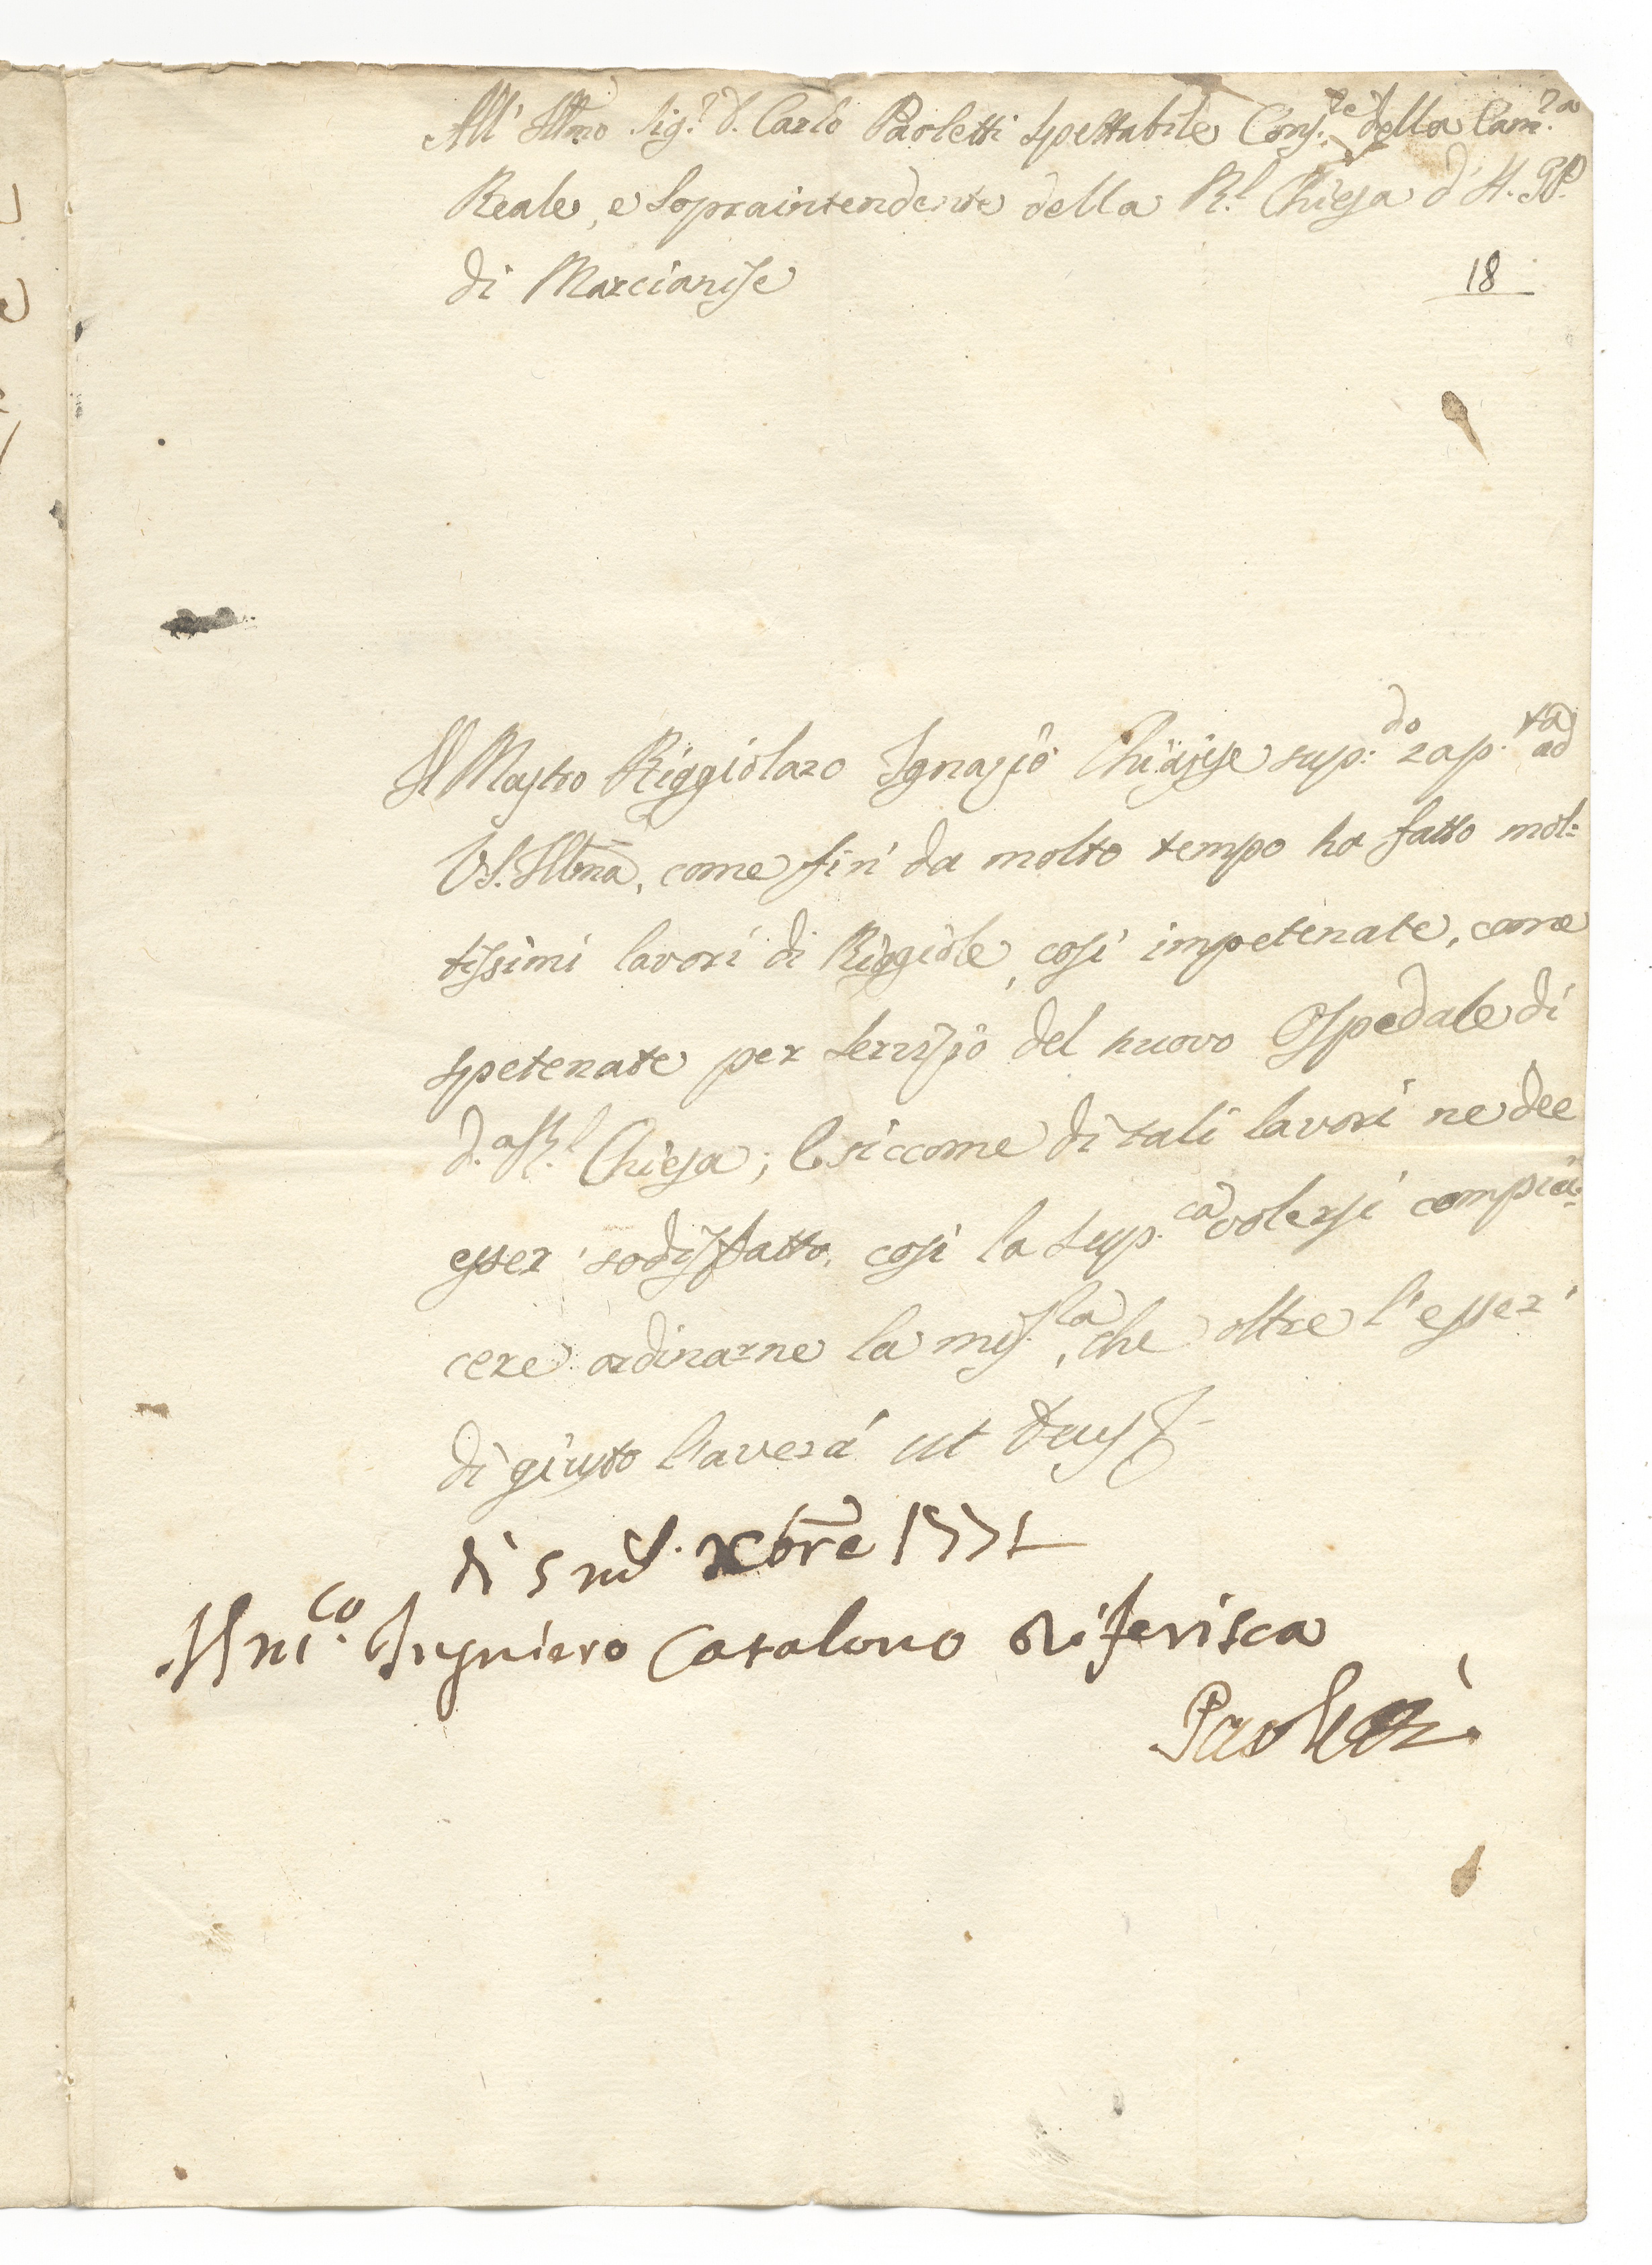 All' Ill.mo Sig.r D. Carlo Paoletti Spettabile Cons.re della Cam.ra
Reale, e Sopraintendente della R.l Chiesa d'
di Marcianise
18
Il Mastro Riggiolaro Ignazio Chiajese sup.do rap.ta ad
V.S. Ill.ma, come fin' da molto tempo ha fatto mol=
tissimi lavori di Riggiole, così impetenate, come
spetenate per servizio del nuovo Ospedale di
d.a R.l Chiesa; e siccome di tali lavori ne dee
esser' sodisfatto, così la sup.ca volersi compia=
cere ordinarne la mis.la, che oltre l'esser'
di giusto l'averà ut Deus
di 5 xbre 1771
Il m.co Ingniero Catalano riferisca
Paoletti